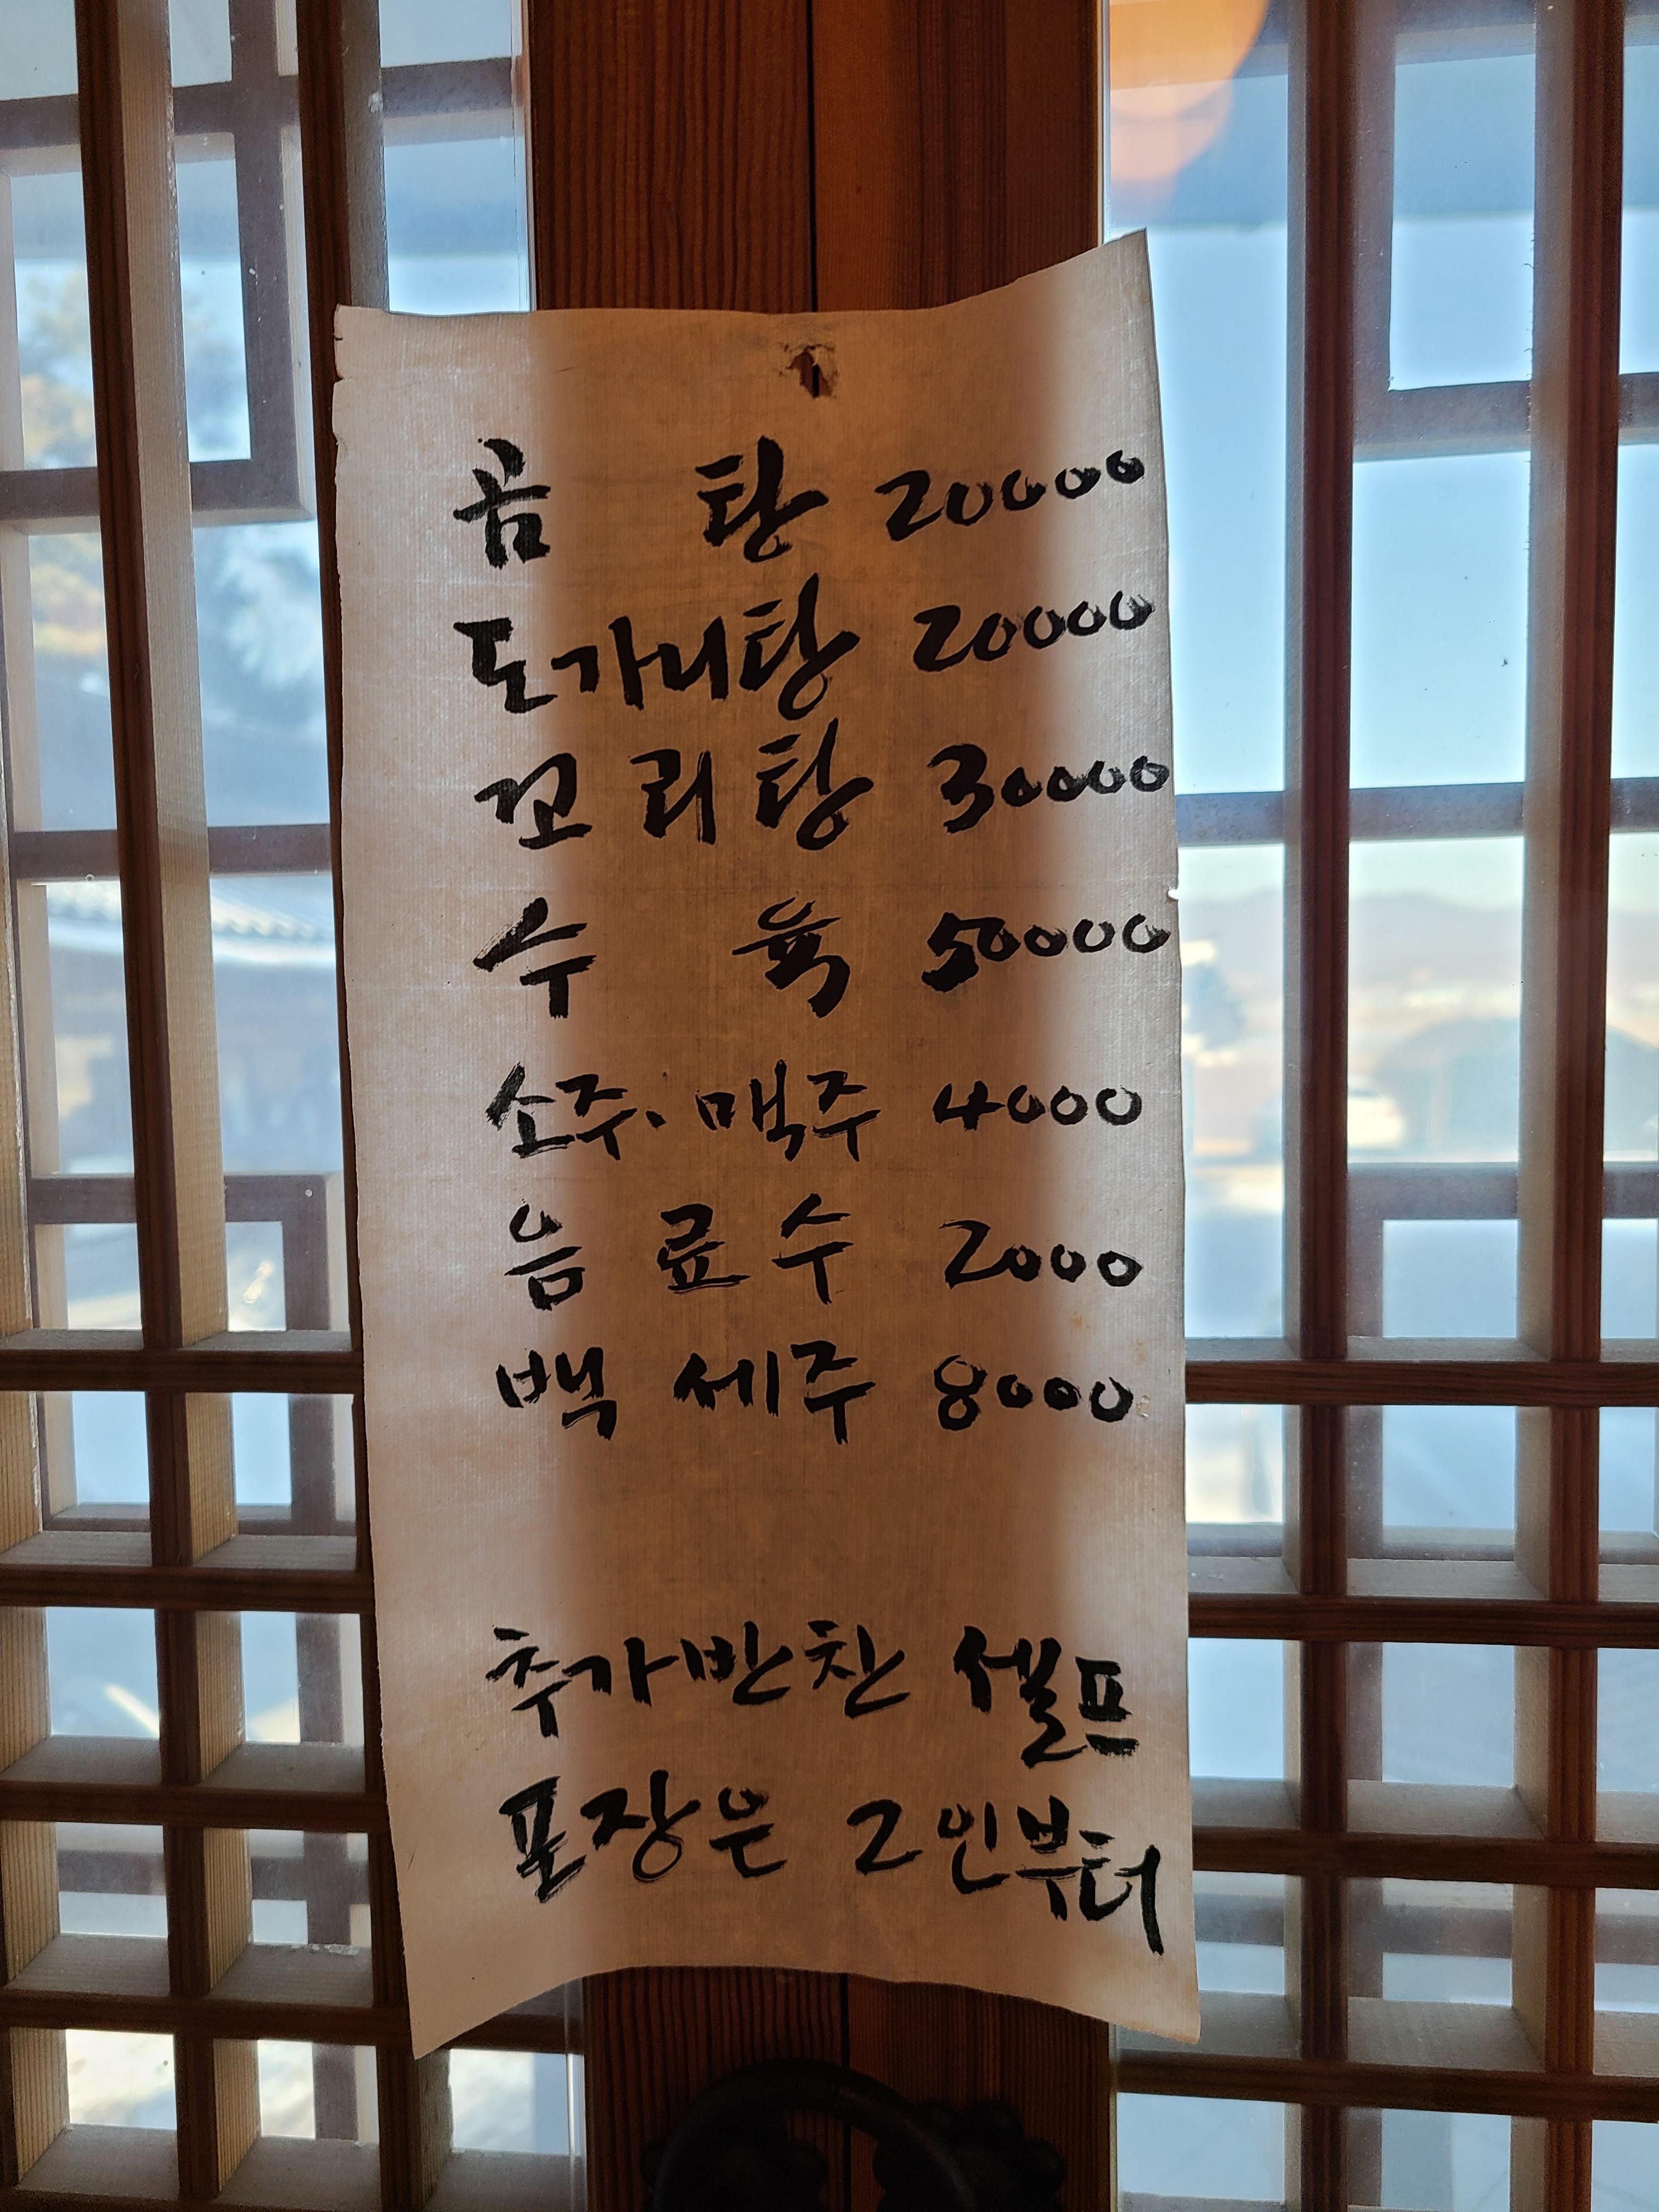 곰 탕 20000
도가니탕 20000
꼬리탕 30000
수 육 50000
소주·맥주 4000
음료수 2000
백세주 8000
추가반찬 셀프
포장은 2인부터